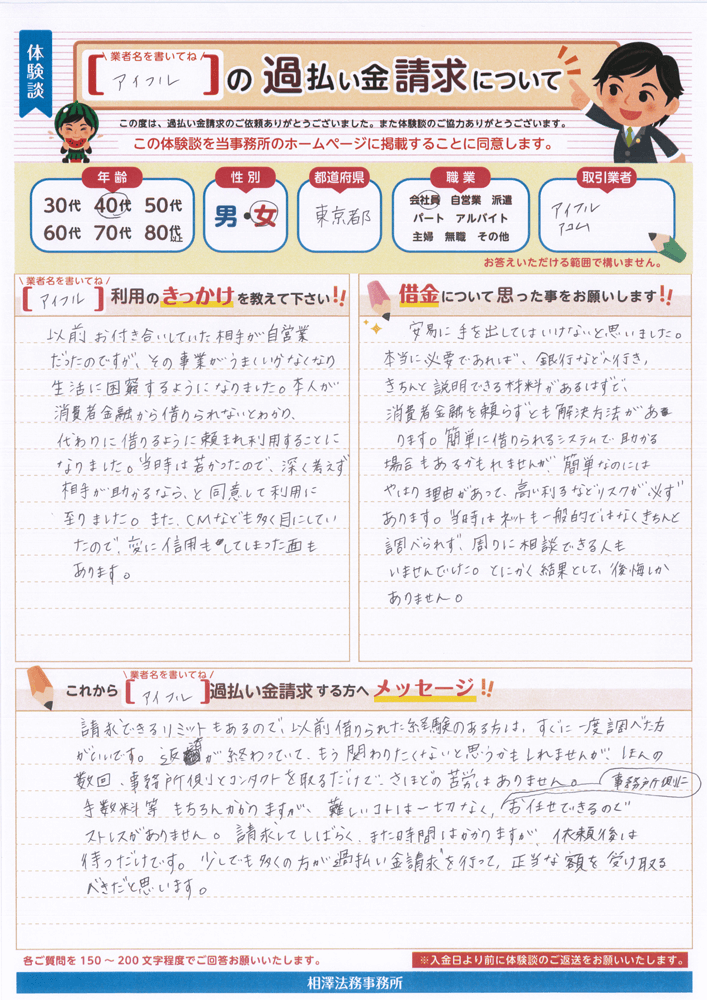 体験談
\ 業者名を書いてね /
[ アイフル ] の 過払い金請求について
この度は、過払い金請求のご依頼ありがとうございました。また体験談のご協力ありがとうございます。
この体験談を当事務所のホームページに掲載することに同意します。
年齢
30代 40代 50代
60代 70代 80代以上
性別
男・女
都道府県
東京都
職業
会社員 自営業 派遣
パート アルバイト
主婦 無職 その他
取引業者
アイフル
アコム
お答えいただける範囲で構いません。
\ 業者名を書いてね /
[ アイフル ] 利用のきっかけを教えて下さい!!
以前お付き合いしていた相手が自営業
だったのですが、その事業がうまくいかなくなり
生活に困窮するようになりました。本人が
消費者金融から借りられないとわかり、
代わりに借りるように頼まれ利用することに
なりました。当時は若かったので、深く考えず
相手が助かるなら、と同意して利用に
至りました。また、CMなども多く目にしてい
たので、変に信用もしてしまった面も
あります。
借金について思った事をお願いします!!
安易に手を出してはいけないと思いました。
本当に必要であれば、銀行などへ行き、
きちんと説明できる材料があるはずで、
消費者金融を頼らずとも解決方法があ
ります。簡単に借りられるシステムで助かる
場合もあるかもれませんが、簡単なのには
やはり理由があって、高い利子などリスクが必ず
あります。当時はネットも一般的ではなくきちんと
調べられず、周りに相談できる人も
いませんでした。とにかく結果として、後悔しか
ありません。
\ 業者名を書いてね /
これから [ アイフル ] 過払い金請求する方へメッセージ!!
請求できるリミットもあるので、以前借りられた経験のある方は、すぐに一度調べた方
がいいです。返済が終わっていて、もう関わりたくないと思うかもしれませんが、ほんの
数回、事務所側とコンタクトを取るだけで、さほどの苦労はありません。
手数料等もちろんかかりますが、難しいコトは一切なく、事務所側にお任せできるので
ストレスがありません。請求してしばらく、また時間はかかりますが、依頼後は
待つだけです。少しでも多くの方が過払い金請求を行って、正当な額を受け取る
べきだと思います。
各ご質問を150~200文字程度でご回答お願いいたします。
※入金日より前に体験談のご返送をお願いいたします。
相澤法務事務所